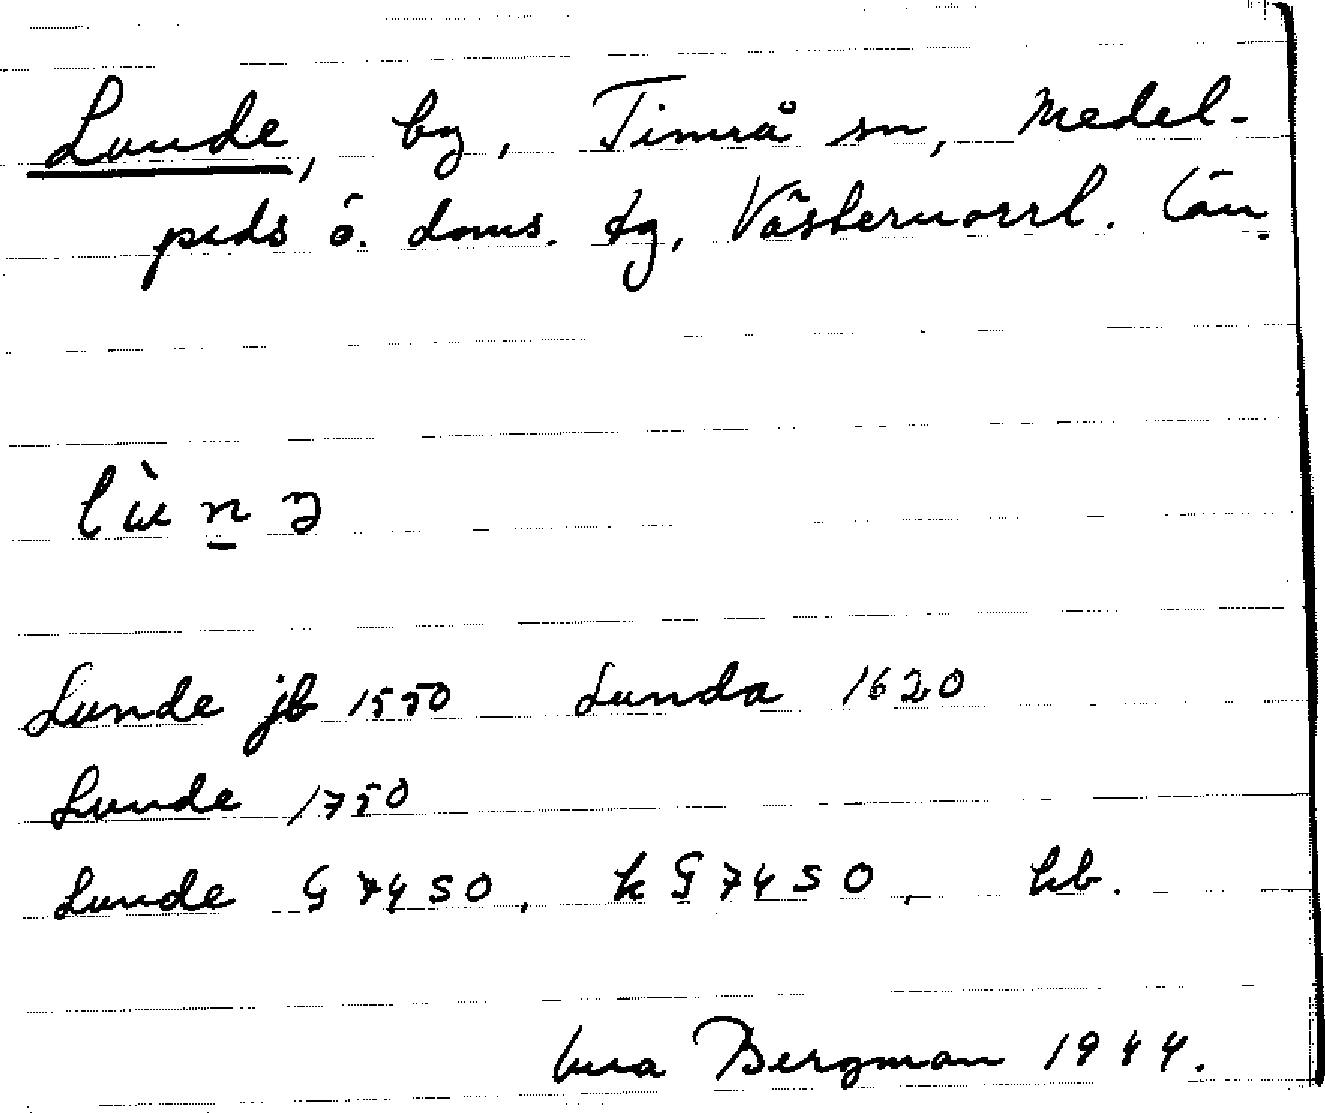 Lunde, by, Timrå sn, Medel-
pads ö. doms. tg, Västernorrl. län.
lùn̠ə
Lunde jb 1550 Lunda 1620
Lunde 1750
Lunde G 7450, k G 7450, hb.
Bergman 1944.